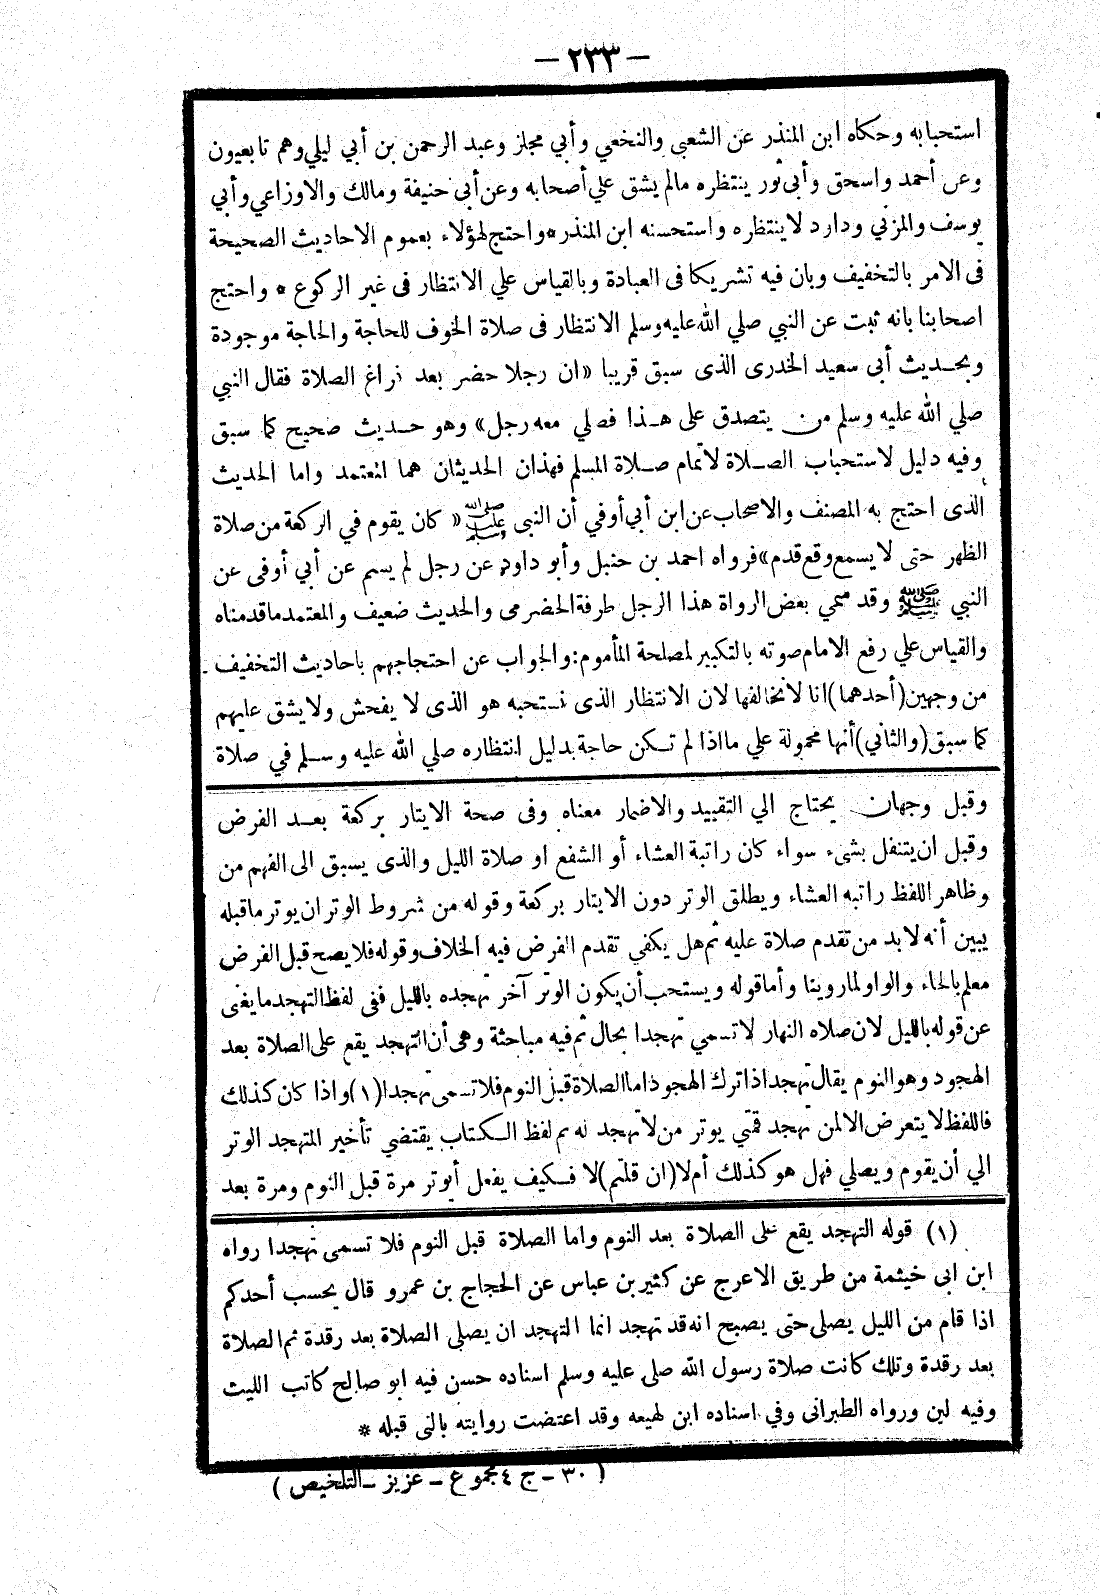 — ٢٣٣ —
استحبابه وحكاه ابن المنذر عن الشعبي والنخعي وأبي مجلز وعبد الرحمن بن أبي ليلي وهم تابعيون
وعن أحمد واسحق وأبى ثور ينتظره مالم يشق علي أصحابه وعن أبى حنيفة ومالك والاوزاعي وأبي
يوسف والمزني ودارد لا ينتظره واستحسنه ابن المنذر * واحتج لهؤلاء بعموم الاحاديث الصحيحة
فى الامر بالتخفيف وبان فيه تشريكا فى العبادة وبالقياس علي الانتظار فى غير الركوع * واحتج
اصحابنا بانه ثبت عن النبي صلي الله عليه وسلم الانتظار فى صلاة الخوف للحاجة والحاجة موجودة
وبحديث أبى سعيد الخدرى الذى سبق قريبا «ان رجلا حضر بعد فراغ الصلاة فقال النبي
صلي الله عليه وسلم من يتصدق على هذا فصلي معه رجل» وهو حديث صحيح كما سبق
وفيه دليل لاستحباب الصلاة لاتمام صلاة المسلم فهذان الحديثان هما المعتمد واما الحديث
الذى احتج به المصنف والاصحاب عن ابن أبي أوفي أن النبى ﷺ « كان يقوم في الركعة من صلاة
الظهر حتى لا يسمع وقع قدم» فرواه احمد بن حنبل وأبو داود عن رجل لم يسم عن أبي أوفى عن
النبي ﷺ وقد سمي بعض الرواة هذا الرجل طرفة الحضرمى والحديث ضعيف والمعتمد ما قدمناه
والقياس علي رفع الامام صوته بالتكبير لمصلحة المأموم: والجواب عن احتجاجهم باحاديث التخفيف
من وجهين (أحدهما) انا لا نخالفها لان الانتظار الذى نستحبه هو الذى لا يفحش ولا يشق عليهم
كما سبق (والثاني) أنها محمولة علي ما اذا لم تكن حاجة بدليل انتظاره صلي الله عليه وسلم في صلاة
وقبل وجهان يحتاج الي التقييد والاضمار معناه وفى صحة الايتار بركعة بعد الفرض
وقبل ان يتنفل بشىء سواء كان راتبة العشاء أو الشفع او صلاة الليل والذى يسبق الى الفهم من
وظاهر اللفظ راتبه العشاء ويطلق الوتر دون الايتار بركعة وقوله من شروط الوتر ان يوتر ما قبله
يبين أنه لا بد من تقدم صلاة عليه ثم هل يكفي تقدم الفرض فيه الخلاف وقوله فلا يصح قبل الفرض
معلم بالحاء والواو لما روينا وأما قوله ويستحب أن يكون الوتر آخر تهجده بالليل ففى لفظ التهجد ما يغنى
عن قوله بالليل لان صلاه النهار لا تسمي تهجدا بحال ثم فيه مباحثة وهى أن التهجد يقع على الصلاة بعد
الهجود وهو النوم يقال تهجد اذا ترك الهجود اما الصلاة قبل النوم فلا تسمى تهجدا (١) واذا كان كذلك
فاللفظ لا يتعرض الا لمن تهجد فمتي يوتر من لا تهجد له ثم لفظ الكتاب يقتضي تأخير المتهجد الوتر
الي أن يقوم ويصلي فهل هو كذلك أم لا (ان قلتم) لا فكيف يفعل أيوتر مرة قبل النوم ومرة بعد
(١) قوله التهجد يقع على الصلاة بعد النوم واما الصلاة قبل النوم فلا تسمى تهجدا رواه
ابن ابى خيثمة من طريق الاعرج عن كثير بن عباس عن الحجاج بن عمرو قال يحسب أحدكم
اذا قام من الليل يصلى حتى يصبح انه قد تهجد انما التهجد ان يصلى الصلاة بعد رقدة ثم الصلاة
بعد رقدة وتلك كانت صلاة رسول الله صلى عليه وسلم اسناده حسن فيه ابو صالح كاتب الليث
وفيه لين ورواه الطبرانى وفي اسناده ابن لهيعه وقد اعتضت روايته بالتى قبله *
( ٣٠ – ج ٤ مجموع – عزيز – التلخيص )